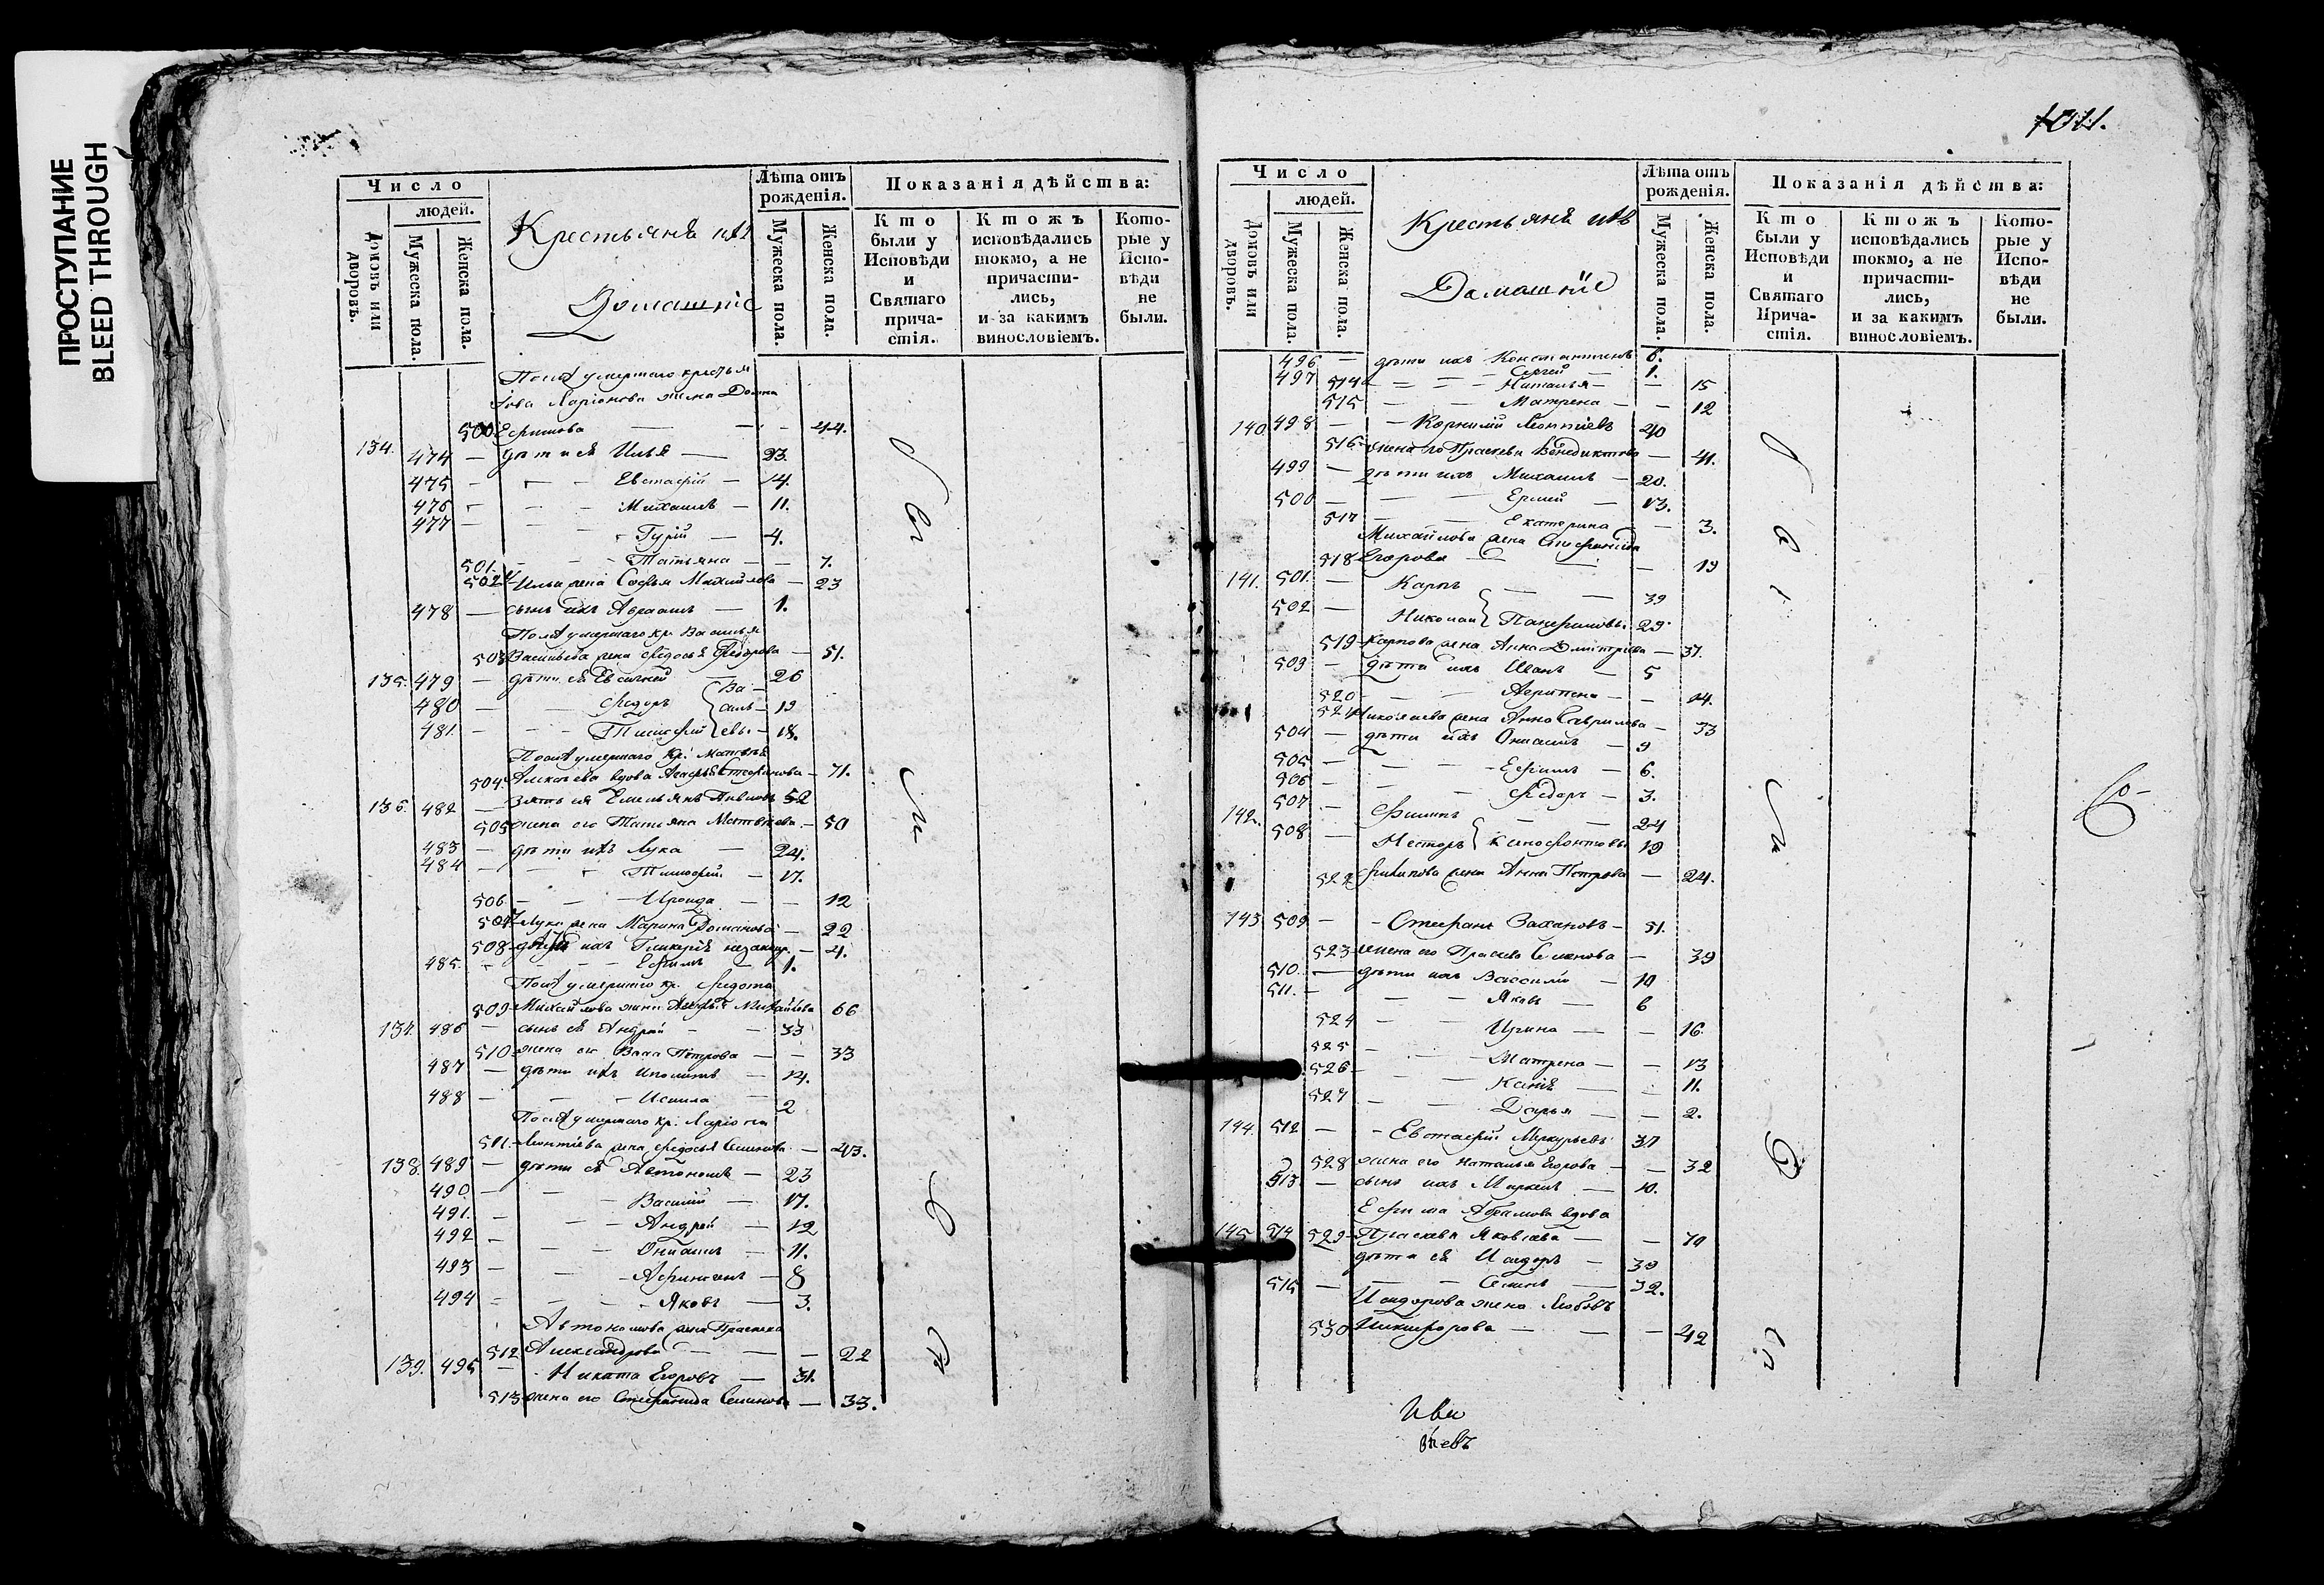 ПРОСТУПАНИЕ
BLEED THROUGH
Число
людей.
Домовъ или дворовъ.
Мужеска пола.
Женска пола.
Крестьянѣ ихъ
Домашніе
Лѣта отъ рожденія.
Мужеска пола.
Женска пола.
Показанія дѣйства:
Кто были у Исповѣди и Святаго прича-стія.
Ктожъ исповѣдались токмо, а не причасти-лись, и за какимъ винословіемъ.
Кото-рые у Испо-вѣди не были.
Послѣ умершаго крестья
Іова Ларіонова жена Домна
500 Ефимова — — 44.
134. 474 — дѣти ея Илья — 23.
475 — — Евстафій — 14.
476 — — Михаилъ — 11.
477 — — Гурій — 4.
501. — — Татьяна — 7.
502 Ильи жена Софья Михайлова — 23
478 — сынъ ихъ Авраамъ — 1.
Послѣ умершаго кр. Василья
503 Васильева жена Федосья Федорова — 51.
135. 479 — дѣти ея Евсигней — 26
480 — — Федоръ — 19
481. — — Тимофей — 18.
Васильевы
Послѣ умершаго кр. Матвѣя
504. Алексѣева вдова Агафья Стефанова — 71.
136. 482 — Зять ея Емельянъ 52
505 жена его Татьяна Матвѣева — 50
483 — дѣти ихъ Лука — 24.
484 — — Тимофей — 17.
506 — — Ироида — 12
507 Луки жена Марина Романова — 22
508 дѣти ихъ Гликерія — 4.
485. — — Ефимъ — 1.
Послѣ умершаго кр. Федота
509 Михайлова жена Агафья Михайлова 66
137. 486 — сынъ ея Андрей — 33
510 жена его Васса Петрова — 33
487 — дѣти ихъ Иполитъ — 14.
488 — — — 2
Послѣ умершаго кр. Ларіона
511. Леонтіева жена Федосья Семенова — 43.
138. 489 — дѣти ея Автономъ — 23
490 — — Василій — 17.
491. — — Андрей — 12
492 — — Онисимъ — 11.
493 — — — 8
494 — — Яковъ — 3.
Автономова жена Праскева
512 Александрова — — 22
139. 495 — Никита Егоровъ — 31.
513 жена его Стефанида Семенова — 33.
1011.
Число
людей.
Домовъ или дворовъ.
Мужеска пола.
Женска пола.
Крестьянѣ ихъ
Домашніе
Лѣта отъ рожденія.
Мужеска пола.
Женска пола.
Показанія дѣйства:
Кто были у Исповѣди и Святаго Прича-стія.
Ктожъ исповѣдались токмо, а не причасти-лись, и за какимъ винословіемъ.
Кото-рые у Испо-вѣди не были.
496 — дѣти ихъ Константинъ 6.
497 — — Сергей — 1.
514 — — Наталья — 15
515 — — Матрена — 12
140 498 — Корнилій Леонтіевъ 40
516 жена его Праскева Венедиктова — 41.
499 — дѣти ихъ Михаилъ — 20.
500 — — Ермей — 13.
517 — — Екатерина — 3.
Михайлова жена Стефанида
518 Егорова — — 19
141. 501. — Карпъ — 39
502 — Николай Панфиловы 29
519 Карпова жена Анна Дмитріева — 37.
503 — дѣти ихъ Иванъ — 5
520 — — Агрипена — 14.
521 Николаева жена Анна Гаврилова — 33
504 — дѣти ихъ Онисимъ — 9
505 — — Ефимъ — 6.
506 — — Федоръ — 3.
142. 507 — Филипъ — 24
508 — Несторъ Ксенофонтовы 19
522 Филипова жена Анна Петрова — 24.
143 509 — Стефанъ — 51.
523 жена его Праскева Семенова — 39
510 — дѣти ихъ Василій — 10
511. — — Яковъ — 6
524 — — Ирина — 16.
525 — — Матрена — 13
526 — — — 11.
527 — — Дарья — 2.
144. 512 — Евстафій Меркурьевъ 37
528 жена его Наталья Егорова — 32
513 — сынъ ихъ Маркелъ — 10.
Ефима Абрамова вдова
145 514 529 Праскева Яковлева — 70
дѣти ея Исидоръ — 39
515 — — Семенъ — 32.
Исидорова жена Любовь
530 Никифорова — — 42
Со-